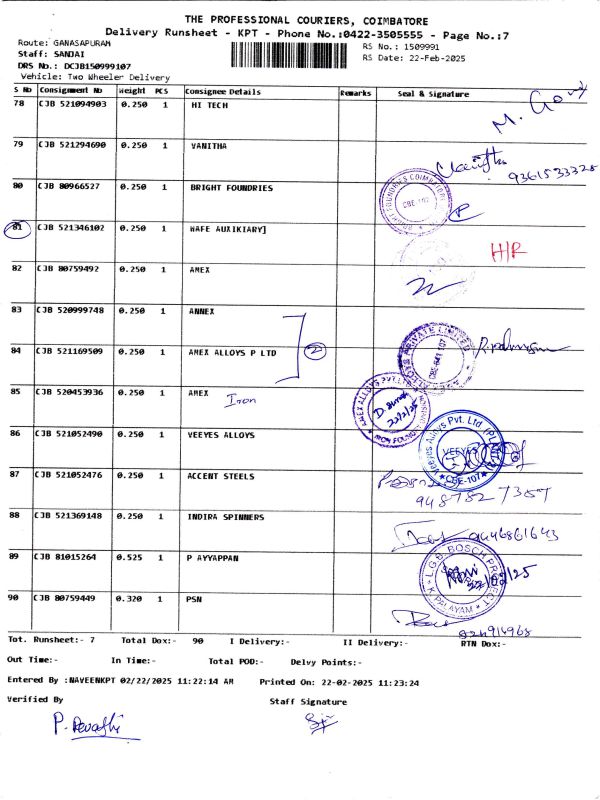 THE PROFESSIONAL COURIERS, COIMBATORE
Delivery Runsheet - KPT - Phone No.:0422-3505555 - Page No.:7
Route: GANASAPURAM
RS No.: 1509991
Staff: SANDAI
RS Date: 22-Feb-2025
DRS No.: DCJB150999107
Vehicle: Two Wheeler Delivery
S No Consignment No Weight PCS Consignee Details Remarks Seal & Signature
78 CJB 521094903 0.250 1 HI TECH
79 CJB 521294690 0.250 1 VANITHA
9361533328
80 CJB 80966527 0.250 1 BRIGHT FOUNDRIES
BRIGHT FOUNDRIES COIMBATORE CBE-107
81 CJB 521346102 0.250 1 WAFE AUXIKIARY]
H/R
82 CJB 80759492 0.250 1 AMEX
83 CJB 520999748 0.250 1 ANNEX
84 CJB 521169509 0.250 1 AMEX ALLOYS P LTD
2
85 CJB 520453936 0.250 1 AMEX
Iron
22/2/25
86 CJB 521052490 0.250 1 VEEYES ALLOYS
Veeyes Alloys Pvt. Ltd VEEYES CBE-107
87 CJB 521052476 0.250 1 ACCENT STEELS
948782 7357
88 CJB 521369148 0.250 1 INDIRA SPINNERS
9446861643
89 CJB 81015264 0.525 1 P AYYAPPAN
L.G.B. BOSCH PROJECT K PALAYAM
90 CJB 80759449 0.320 1 PSN
Tot. Runsheet:- 7 Total Dox:- 90 I Delivery:- II Delivery:- RTN Dox:-
Out Time:- In Time:- Total POD:- Delvy Points:-
Entered By :NAVEENKPT 02/22/2025 11:22:14 AM Printed On: 22-02-2025 11:23:24
Verified By Staff Signature